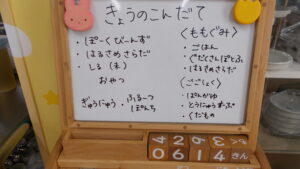 きょうのこんだて
・ぽーくびーんず
・はるさめさらだ
・しる（ ）
おやつ
ぎゅうにゅう・ふるーつ
ぽんち
＜ももぐみ＞
・ごはん
・ぐだくさんぽとふ
・はるさめさらだ
＜ごごしょく＞
・ぱんがゆ
・とうにゅうすーぷ
・くだもの